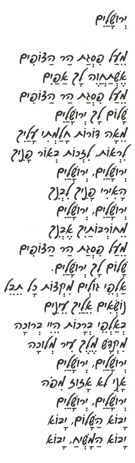 ירושלים
מעל פסגת הר הצופים
אשתחוה לך אפים
מעל פסגת הר הצופים
שלום לך ירושלים
מאה דורות חלמתי עליך
לראות, לזכות באור פניך
ירושלים, ירושלים
האירי פניך לבנך
ירושלים, ירושלים
מחרבותיך אבנך
מעל פסגת הר הצופים
שלום לך ירושלים.
אלפי גולים מקצות כל תבל
נושאים אליך עינים
באלפי ברכות היי ברוכה
מקדש מלך עיר מלוכה
ירושלים, ירושלים
אני לא אזוז מפה
ירושלים, ירושלים
יבוא השלום, יבוא
יבוא המשיח, יבוא